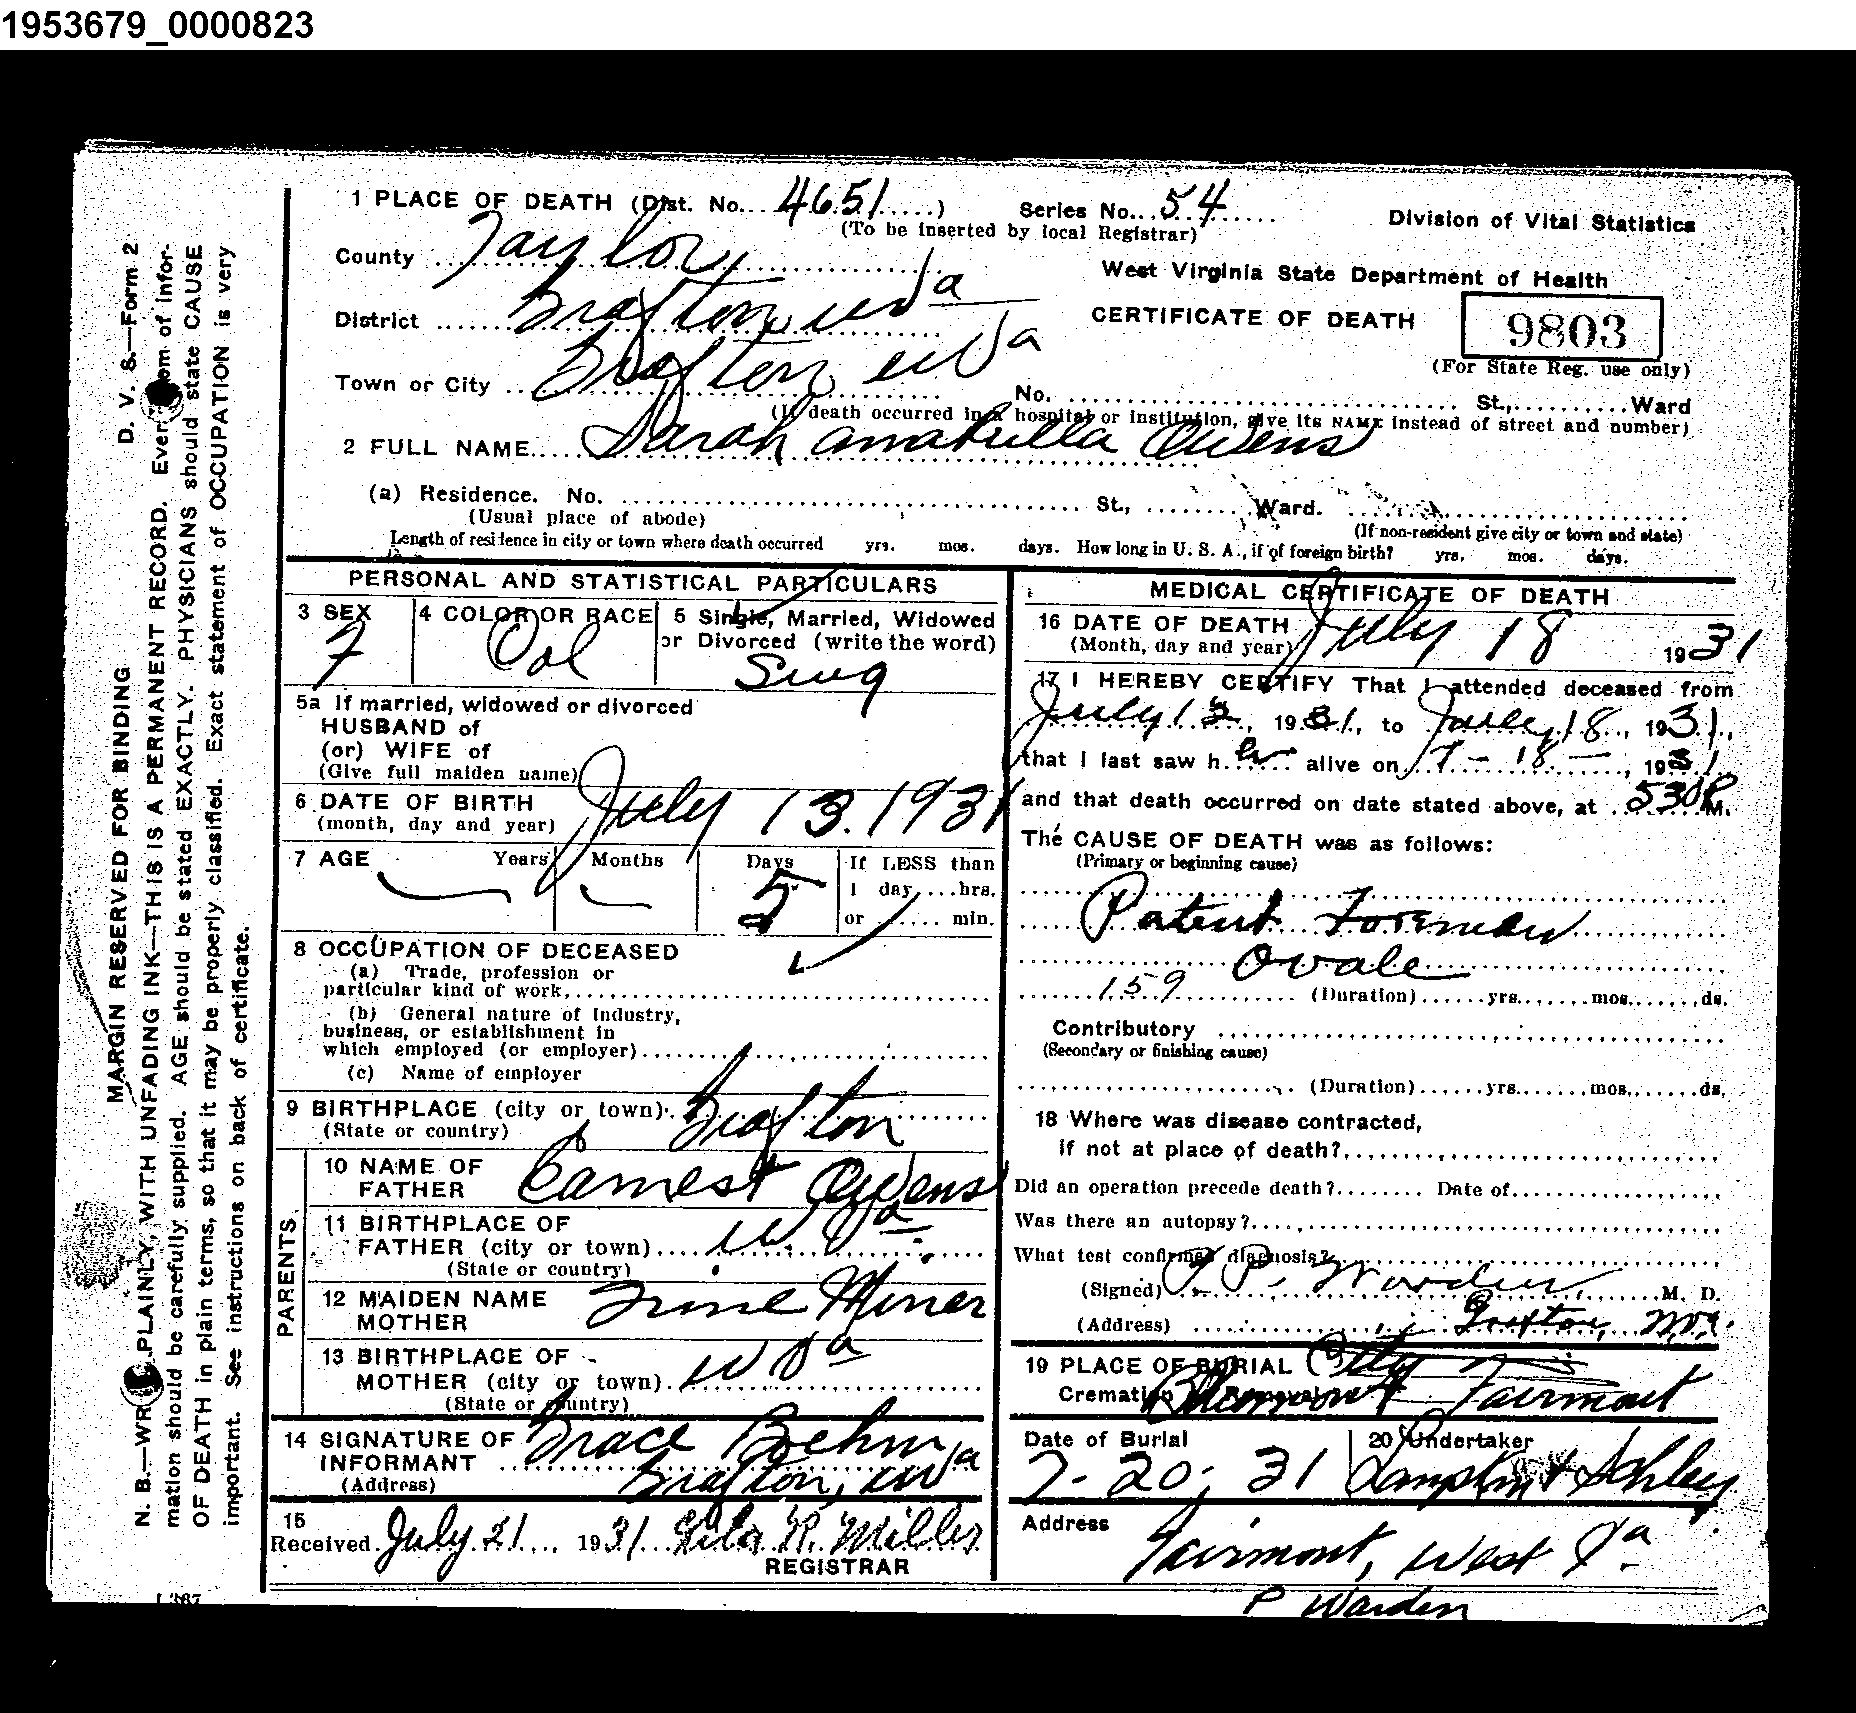 1953679_0000823
1 PLACE OF DEATH (Dist. No. 4651) Series No. 54 Division of Vital Statistics
(To be inserted by local Registrar)
County Taylor West Virginia State Department of Health
District Grafton wva CERTIFICATE OF DEATH 9803
(For State Reg. use only)
Town or City Grafton wva No. St., Ward
(If death occurred in a hospital or institution, give its NAME instead of street and number)
2 FULL NAME Sarah Owens
(a) Residence. No. St., Ward.
(Usual place of abode) (If non-resident give city or town and state)
Length of residence in city or town where death occurred yrs. mos. days. How long in U. S. A., if of foreign birth? yrs. mos. days.
PERSONAL AND STATISTICAL PARTICULARS
3 SEX 4 COLOR OR RACE 5 Single, Married, Widowed
or Divorced (write the word)
F Col Sing
5a If married, widowed or divorced
HUSBAND of
(or) WIFE of
(Give full maiden name)
6 DATE OF BIRTH July 13. 1931
(month, day and year)
7 AGE Years Months Days If LESS than
1 day, hrs.
5 or min.
8 OCCUPATION OF DECEASED
(a) Trade, profession or
particular kind of work,
(b) General nature of Industry,
business, or establishment in
which employed (or employer)
(c) Name of employer
9 BIRTHPLACE (city or town) Grafton
(State or country)
PARENTS
10 NAME OF
FATHER Earnest Owens
11 BIRTHPLACE OF
FATHER (city or town) W. Va
(State or country)
12 MAIDEN NAME
MOTHER Irine Miner
13 BIRTHPLACE OF
MOTHER (city or town) W Va
(State or country)
14 SIGNATURE OF
INFORMANT Grace Boehm
(Address) Grafton, wva
15
Received July 21 1931 Lila R. Miller
REGISTRAR
MEDICAL CERTIFICATE OF DEATH
16 DATE OF DEATH July 18 1931
(Month, day and year)
17 I HEREBY CERTIFY That I attended deceased from
July 13, 1931, to July 18, 1931,
that I last saw her alive on 7-18-, 1931
and that death occurred on date stated above, at 530 P M.
The CAUSE OF DEATH was as follows:
(Primary or beginning cause)
Patent Foremen
Ovale
159 (Duration) yrs. mos. ds.
Contributory
(Secondary or finishing cause)
(Duration) yrs. mos. ds.
18 Where was disease contracted,
if not at place of death?
Did an operation precede death? Date of
Was there an autopsy?
What test confirmed diagnosis?
(Signed) P. Warden M. D.
(Address) Grafton,
19 PLACE OF BURIAL
Cremation or Removal Fairmont
Date of Burial 20 Undertaker
7-20, 31 & Ashley
Address Fairmont, West Va
P Warden
MARGIN RESERVED FOR BINDING D. V. S.—Form 2
N. B.—WRITE PLAINLY, WITH UNFADING INK—THIS IS A PERMANENT RECORD. Every item of infor-
mation should be carefully supplied. AGE should be stated EXACTLY. PHYSICIANS should state CAUSE
OF DEATH in plain terms, so that it may be properly classified. Exact statement of OCCUPATION is very
important. See instructions on back of certificate.